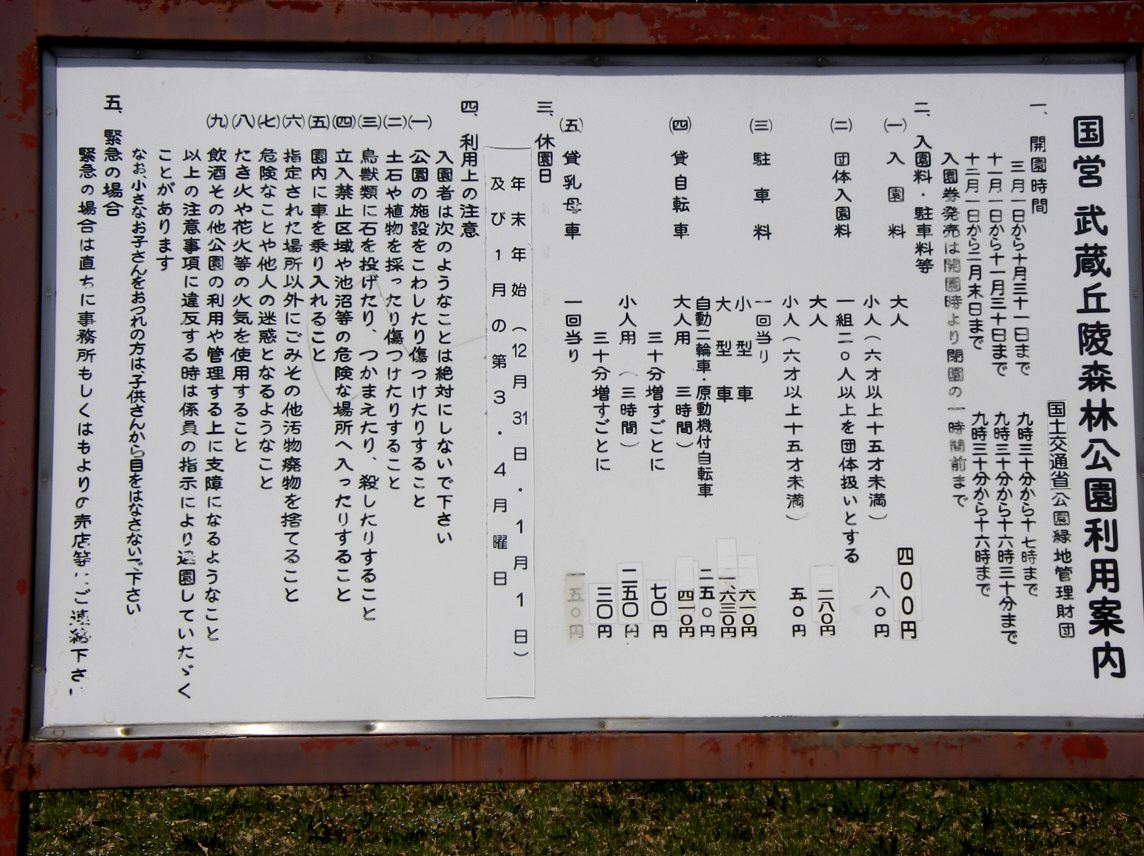 国営 武蔵丘陵森林公園利用案内
国土交通省 公園緑地管理財団
一、開園時間
三月一日から十月三十一日まで 九時三十分から十七時まで
十一月一日から十一月三十日まで 九時三十分から十六時三十分まで
十二月一日から二月末日まで 九時三十分から十六時まで
入園券発売は開園時より閉園の一時間前まで
二、入園料・駐車料等
㈠ 入園料 大人 四〇〇円
小人(六才以上十五才未満) 八〇円
㈡ 団体入園料 一組二〇人以上を団体扱いとする
大人 二八〇円
小人(六才以上十五才未満) 五〇円
㈢ 駐車料 一回当り
小型車 六一〇円
大型車 一、六三〇円
自動二輪車・原動機付自転車 二五〇円
㈣ 貸自転車 大人用 三時間) 四一〇円
三十分増すごとに 七〇円
小人用 (三時間) 二五〇円
三十分増すごとに 三〇円
㈤ 貸乳母車 一回当り 一五〇円
三、休園日
年末年始(12月31日・1月1日)
及び1月の第3・4月曜日
四、利用上の注意
入園者は次のようなことは絶対にしないで下さい
㈠ 公園の施設をこわしたり傷つけたりすること
㈡ 土石や植物を採ったり傷つけたりすること
㈢ 鳥獣類に石を投げたり、つかまえたり、殺したりすること
㈣ 立入禁止区域や池沼等の危険な場所へ入ったりすること
㈤ 園内に車を乗り入れること
㈥ 指定された場所以外にごみその他汚物廃物を捨てること
㈦ 危険なことや他人の迷惑となるようなこと
㈧ たき火や花火等の火気を使用すること
㈨ 飲酒その他公園の利用や管理する上に支障になるようなこと
以上の注意事項に違反する時は係員の指示により退園していたゞく
ことがあります
なお、小さなお子さんをおつれの方は、子供さんから目をはなさないで下さい
五、緊急の場合
緊急の場合は直ちに事務所もしくはもよりの売店等にご連絡下さい